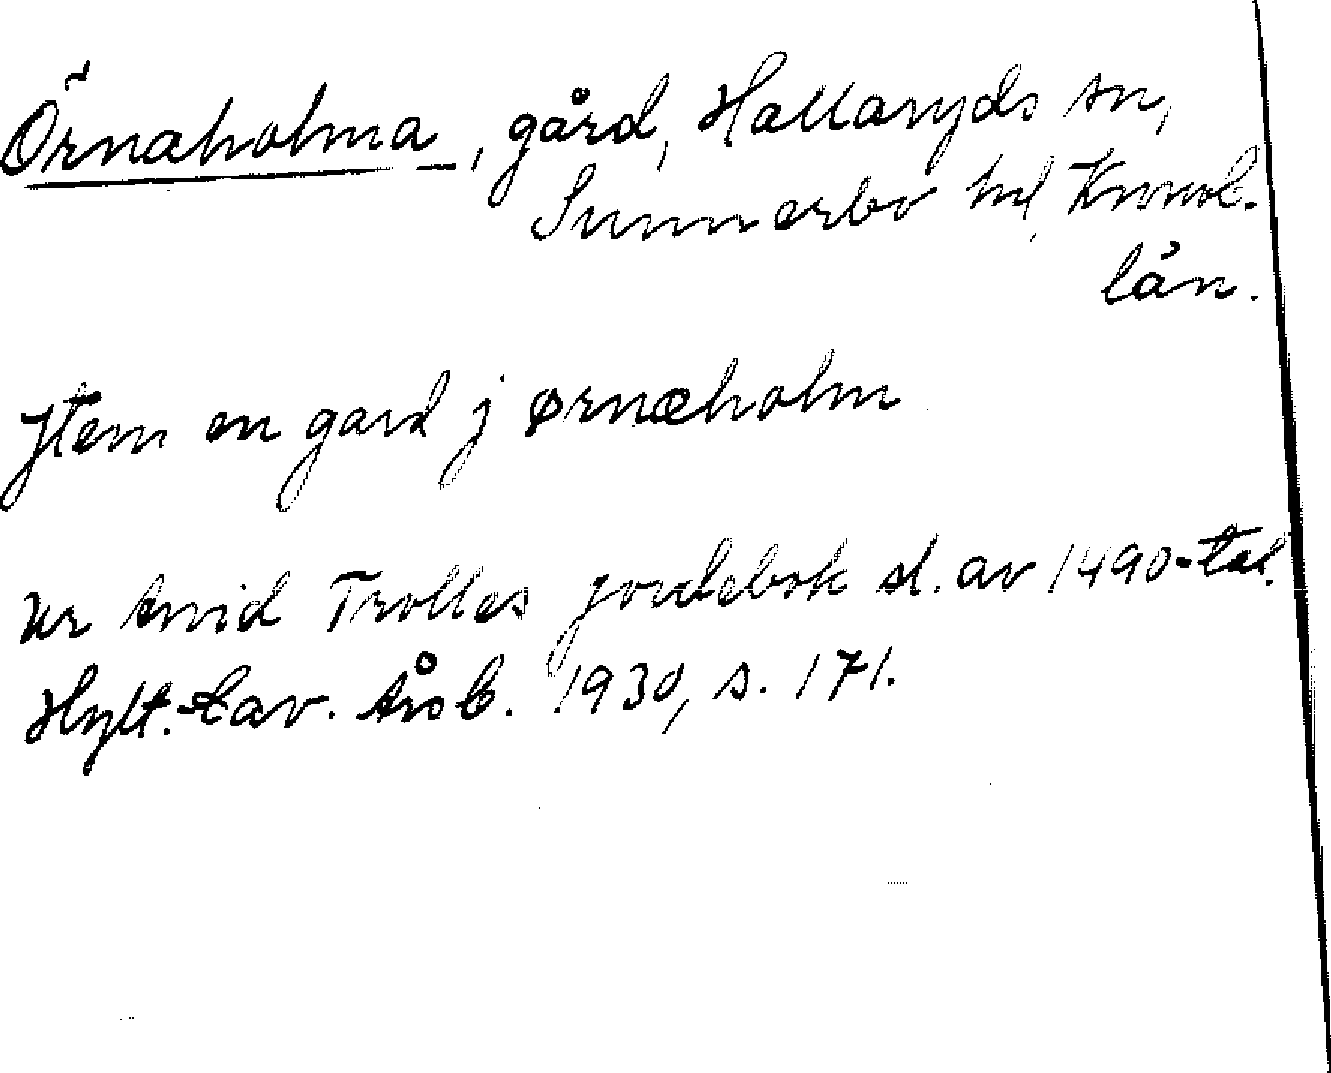 Örnaholma, gård, Hallaryds sn,
Sunnerbo hd, Kronob.
län.
Jtem en gard j ørnæholm
Ur Arvid Trolles jordebok sl. av 1490-tal.
Hylt.-Cav. Årsb. 1930, s. 171.